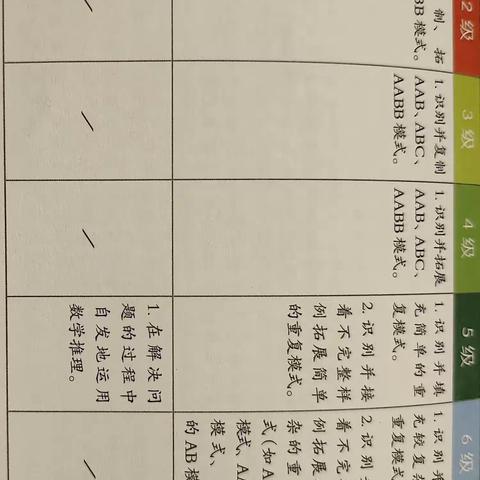 2级
制、拓
BB模式。
3级
1. 识别并复制
AAB、ABC、
AABB模式。
/
4级
1. 识别并拓展
AAB、ABC、
AABB模式。
/
5级
1. 识别并填
充简单的重
复模式。
2. 识别并接
着不完整样
例拓展简单
的重复模式。
1. 在解决问
题的过程中
自发地运用
数学推理。
6级
1. 识别并
充较复杂
重复模式
2. 识别
着不完
例拓展
杂的重
式(如A
模式、A
模式、
的AB模
/